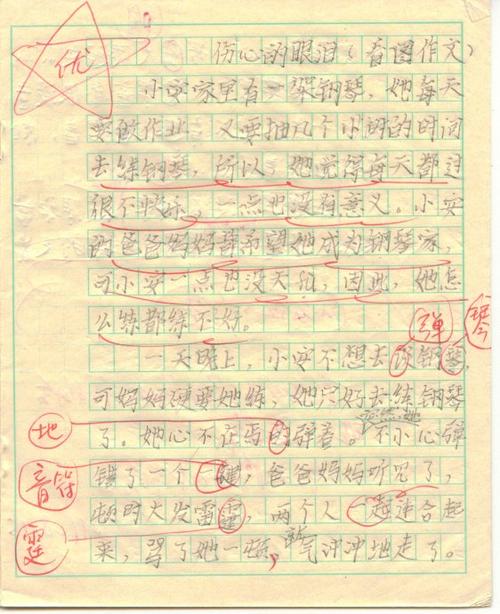 优
伤心的眼泪（看图作文）
小安家里有一架钢琴，她每天
要做作业，又要抽几个小时的时间
去练钢琴，所以，她觉得每天都过
很不快乐，一点也没有意义。小安
的爸爸妈妈都希望她成为钢琴家，
可小安一点也没天，因此，她怎
么练都练不好。
弹 琴
一天晚上，小安不想去谈钢琴，
可妈妈硬要她练，她只好去练钢琴
地
了。她心不在焉的弹着。不小心弹
音符
错了一个键，爸爸妈妈听见了，
顿时大发雷，两个人一起连合起
霆
来，骂了她一顿，就气冲冲地走了。